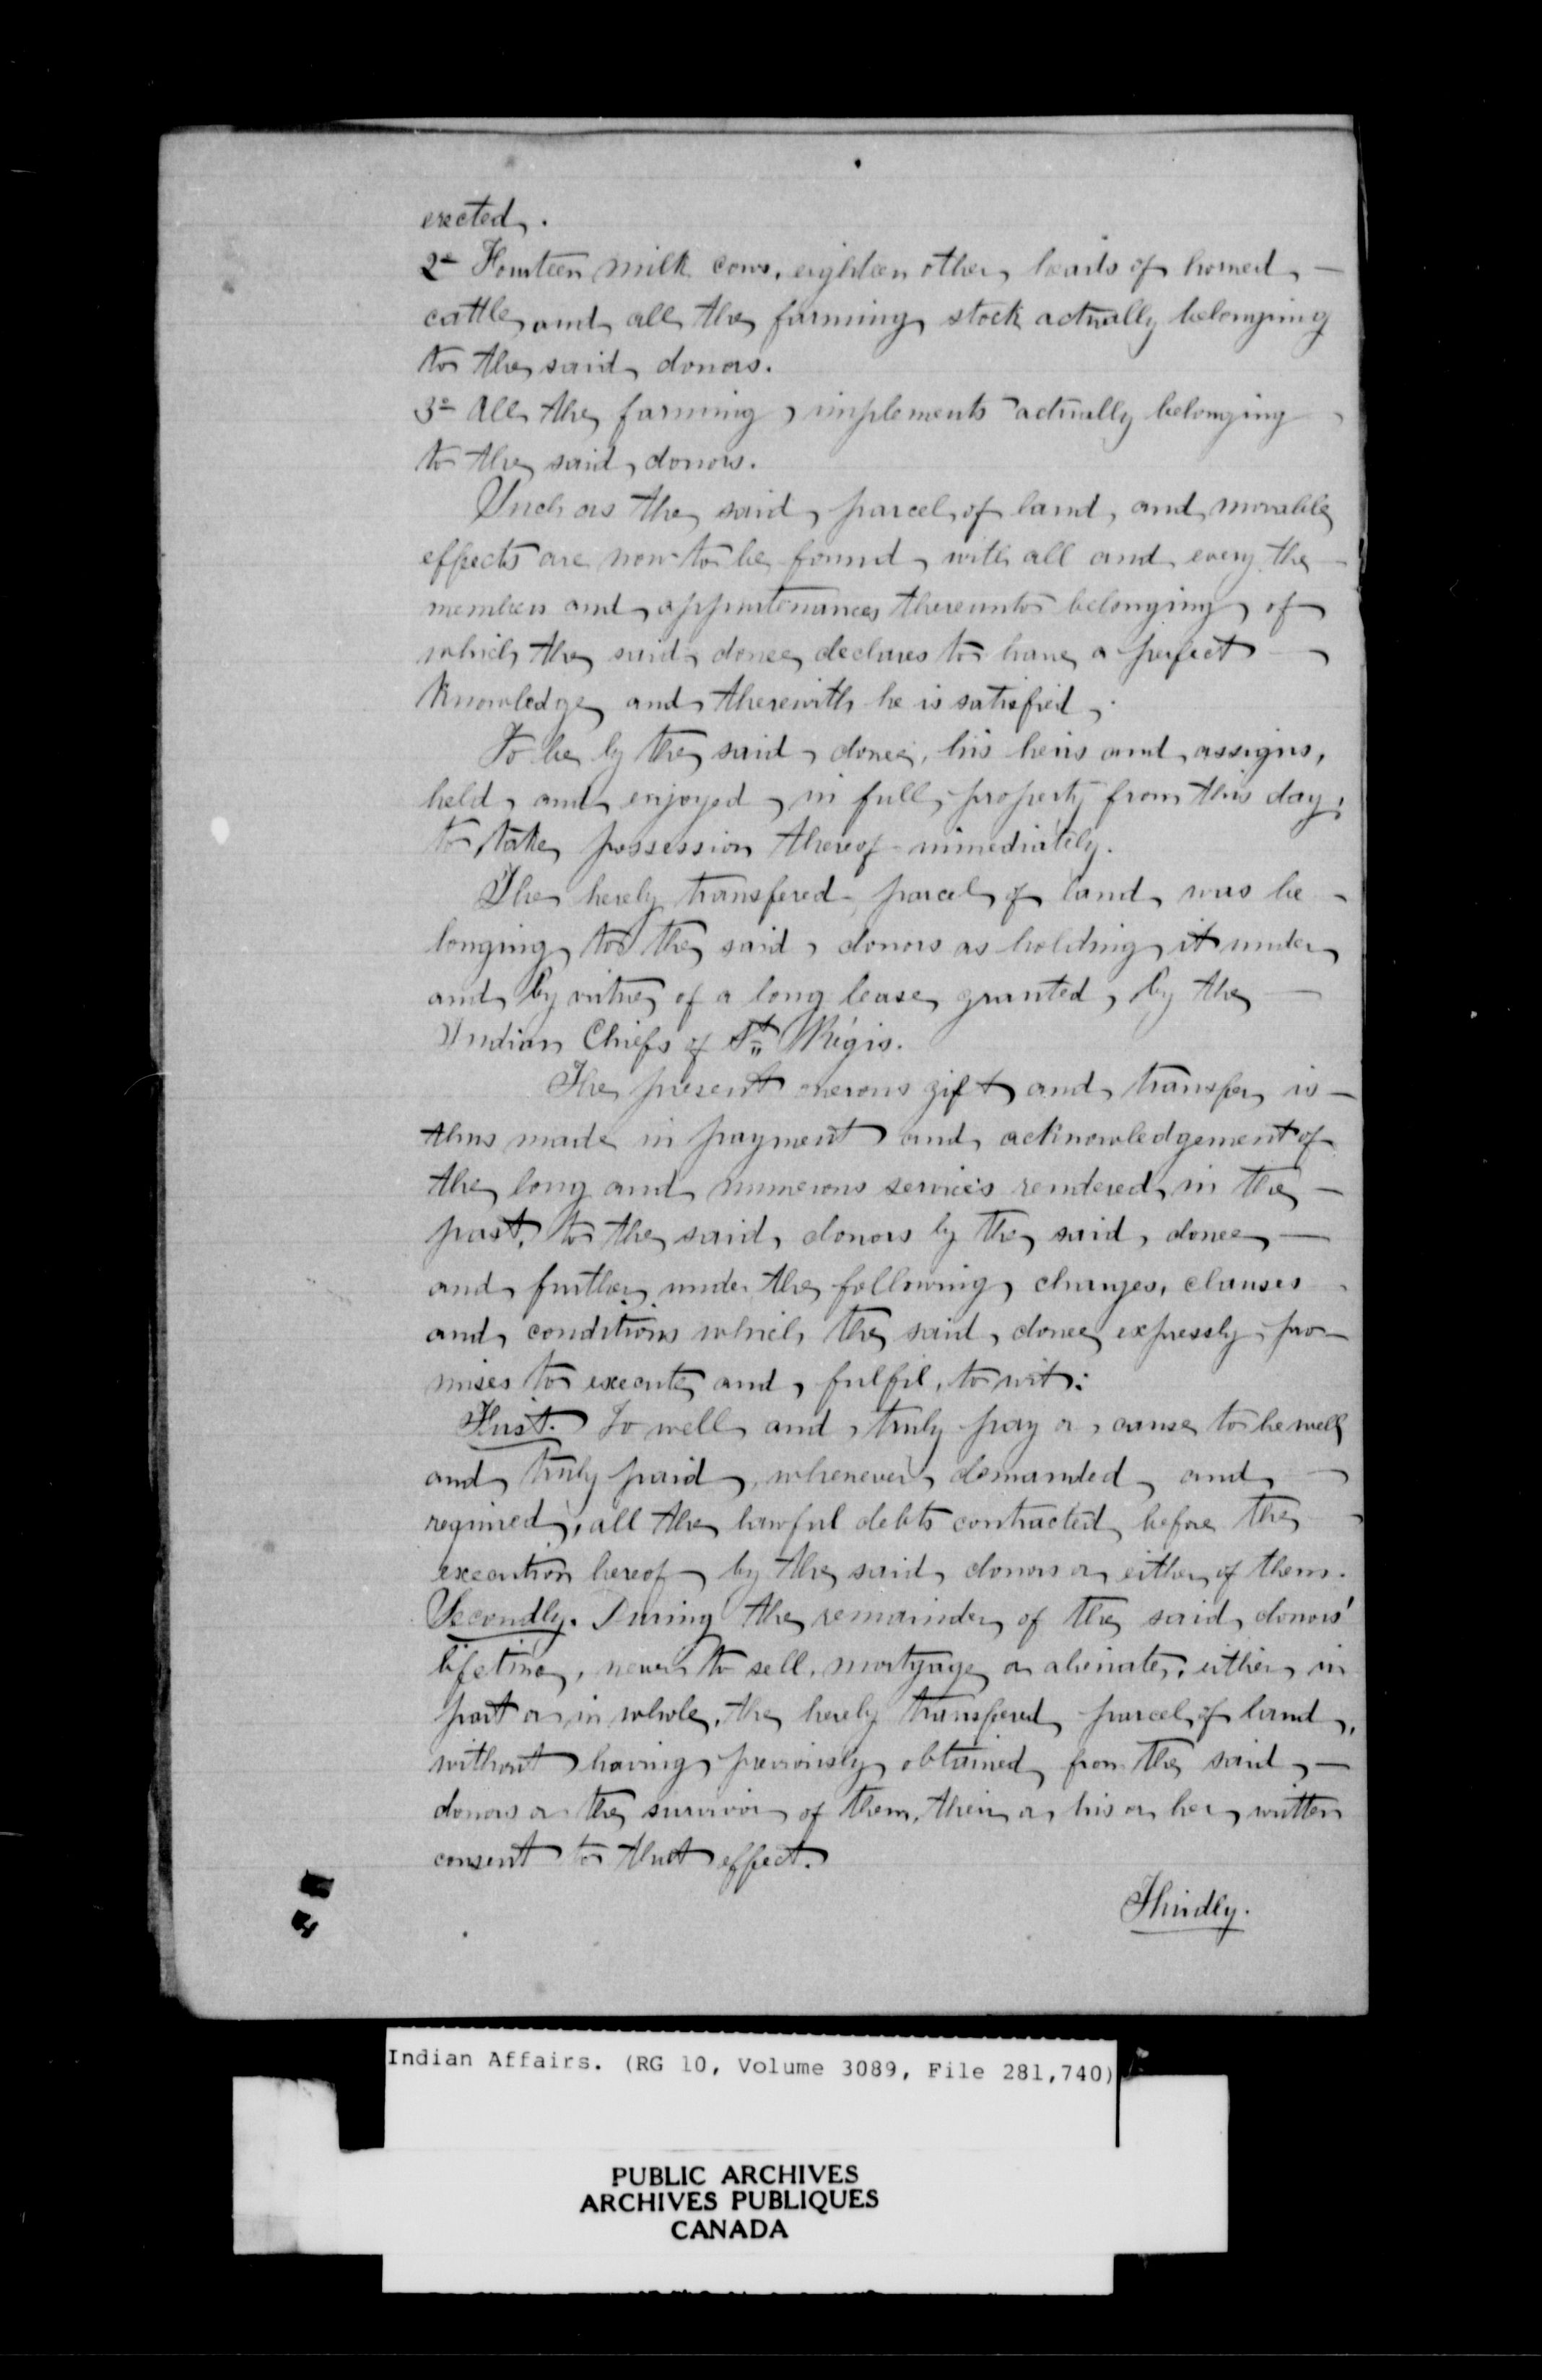 erected.
2º Fourteen milk cows, eighteen other heads of horned —
cattle and all the farming stock actually belonging
to the said donors.
3º All the farming implements actually belonging
to the said donors.
Such as the said parcel of land and movable
effects are now to be found with all and every the —
members and appurtenances thereunto belonging of
which the said donee declares to have a perfect —
knowledge and therewith he is satisfied.
To be by the said donee, his heirs and assigns,
held and enjoyed in full property from this day,
to take possession thereof immediately.
The hereby transfered parcel of land was be-
longing to the said donors as holding it under
and by virtue of a long lease granted by the —
Indian Chiefs of St. Régis.
The present onerous gift and transfer is —
thus made in payment and acknowledgement of
the long and numerous services rendered in the —
past, to the said donors by the said donee —
and further under the following charges, clauses
and conditions which the said donee expressly pro-
mises to execute and fulfil, to wit:
First. To well and truly pay or cause to be well
and truly paid, whenever demanded and
required, all the lawful debts contracted before the
execution hereof by the said donors or either of them.
Secondly. During the remainder of the said donors'
lifetime, never to sell, mortgage or alienate, either in
part or in whole, the hereby transfered parcel of land,
without having previously obtained from the said —
donors or the survivor of them, their or his or her written
consent to that effect.
Thirdly.
Indian Affairs. (RG 10, Volume 3089, File 281,740)
PUBLIC ARCHIVES
ARCHIVES PUBLIQUES
CANADA